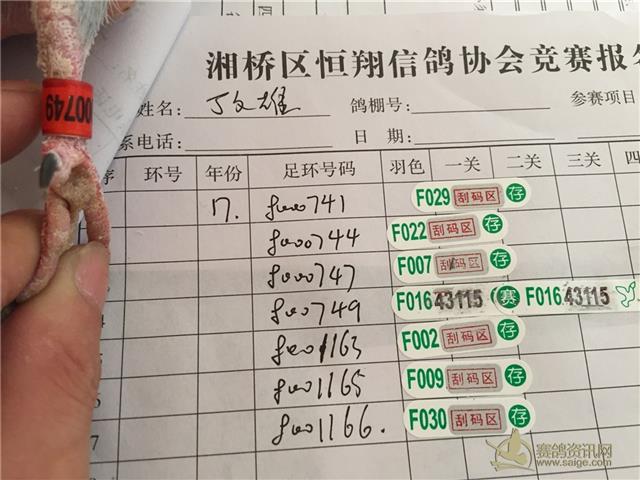 湘桥区恒翔信鸽协会竞赛报名
姓名: 丁文雄 鸽棚号: 参赛项目
系电话: 日 期:
序 环号 年份 足环号码 羽色 一关 二关 三关 四
00749
17. 741 F029 刮码区 存
744 F022 刮码区 存
747 F007 刮码区 存
749 F016 43115 赛 F016 43115
1163 F002 刮码区 存
1165 F009 刮码区 存
7 1166. F030 刮码区 存
赛鸽资讯网
www.saige.com